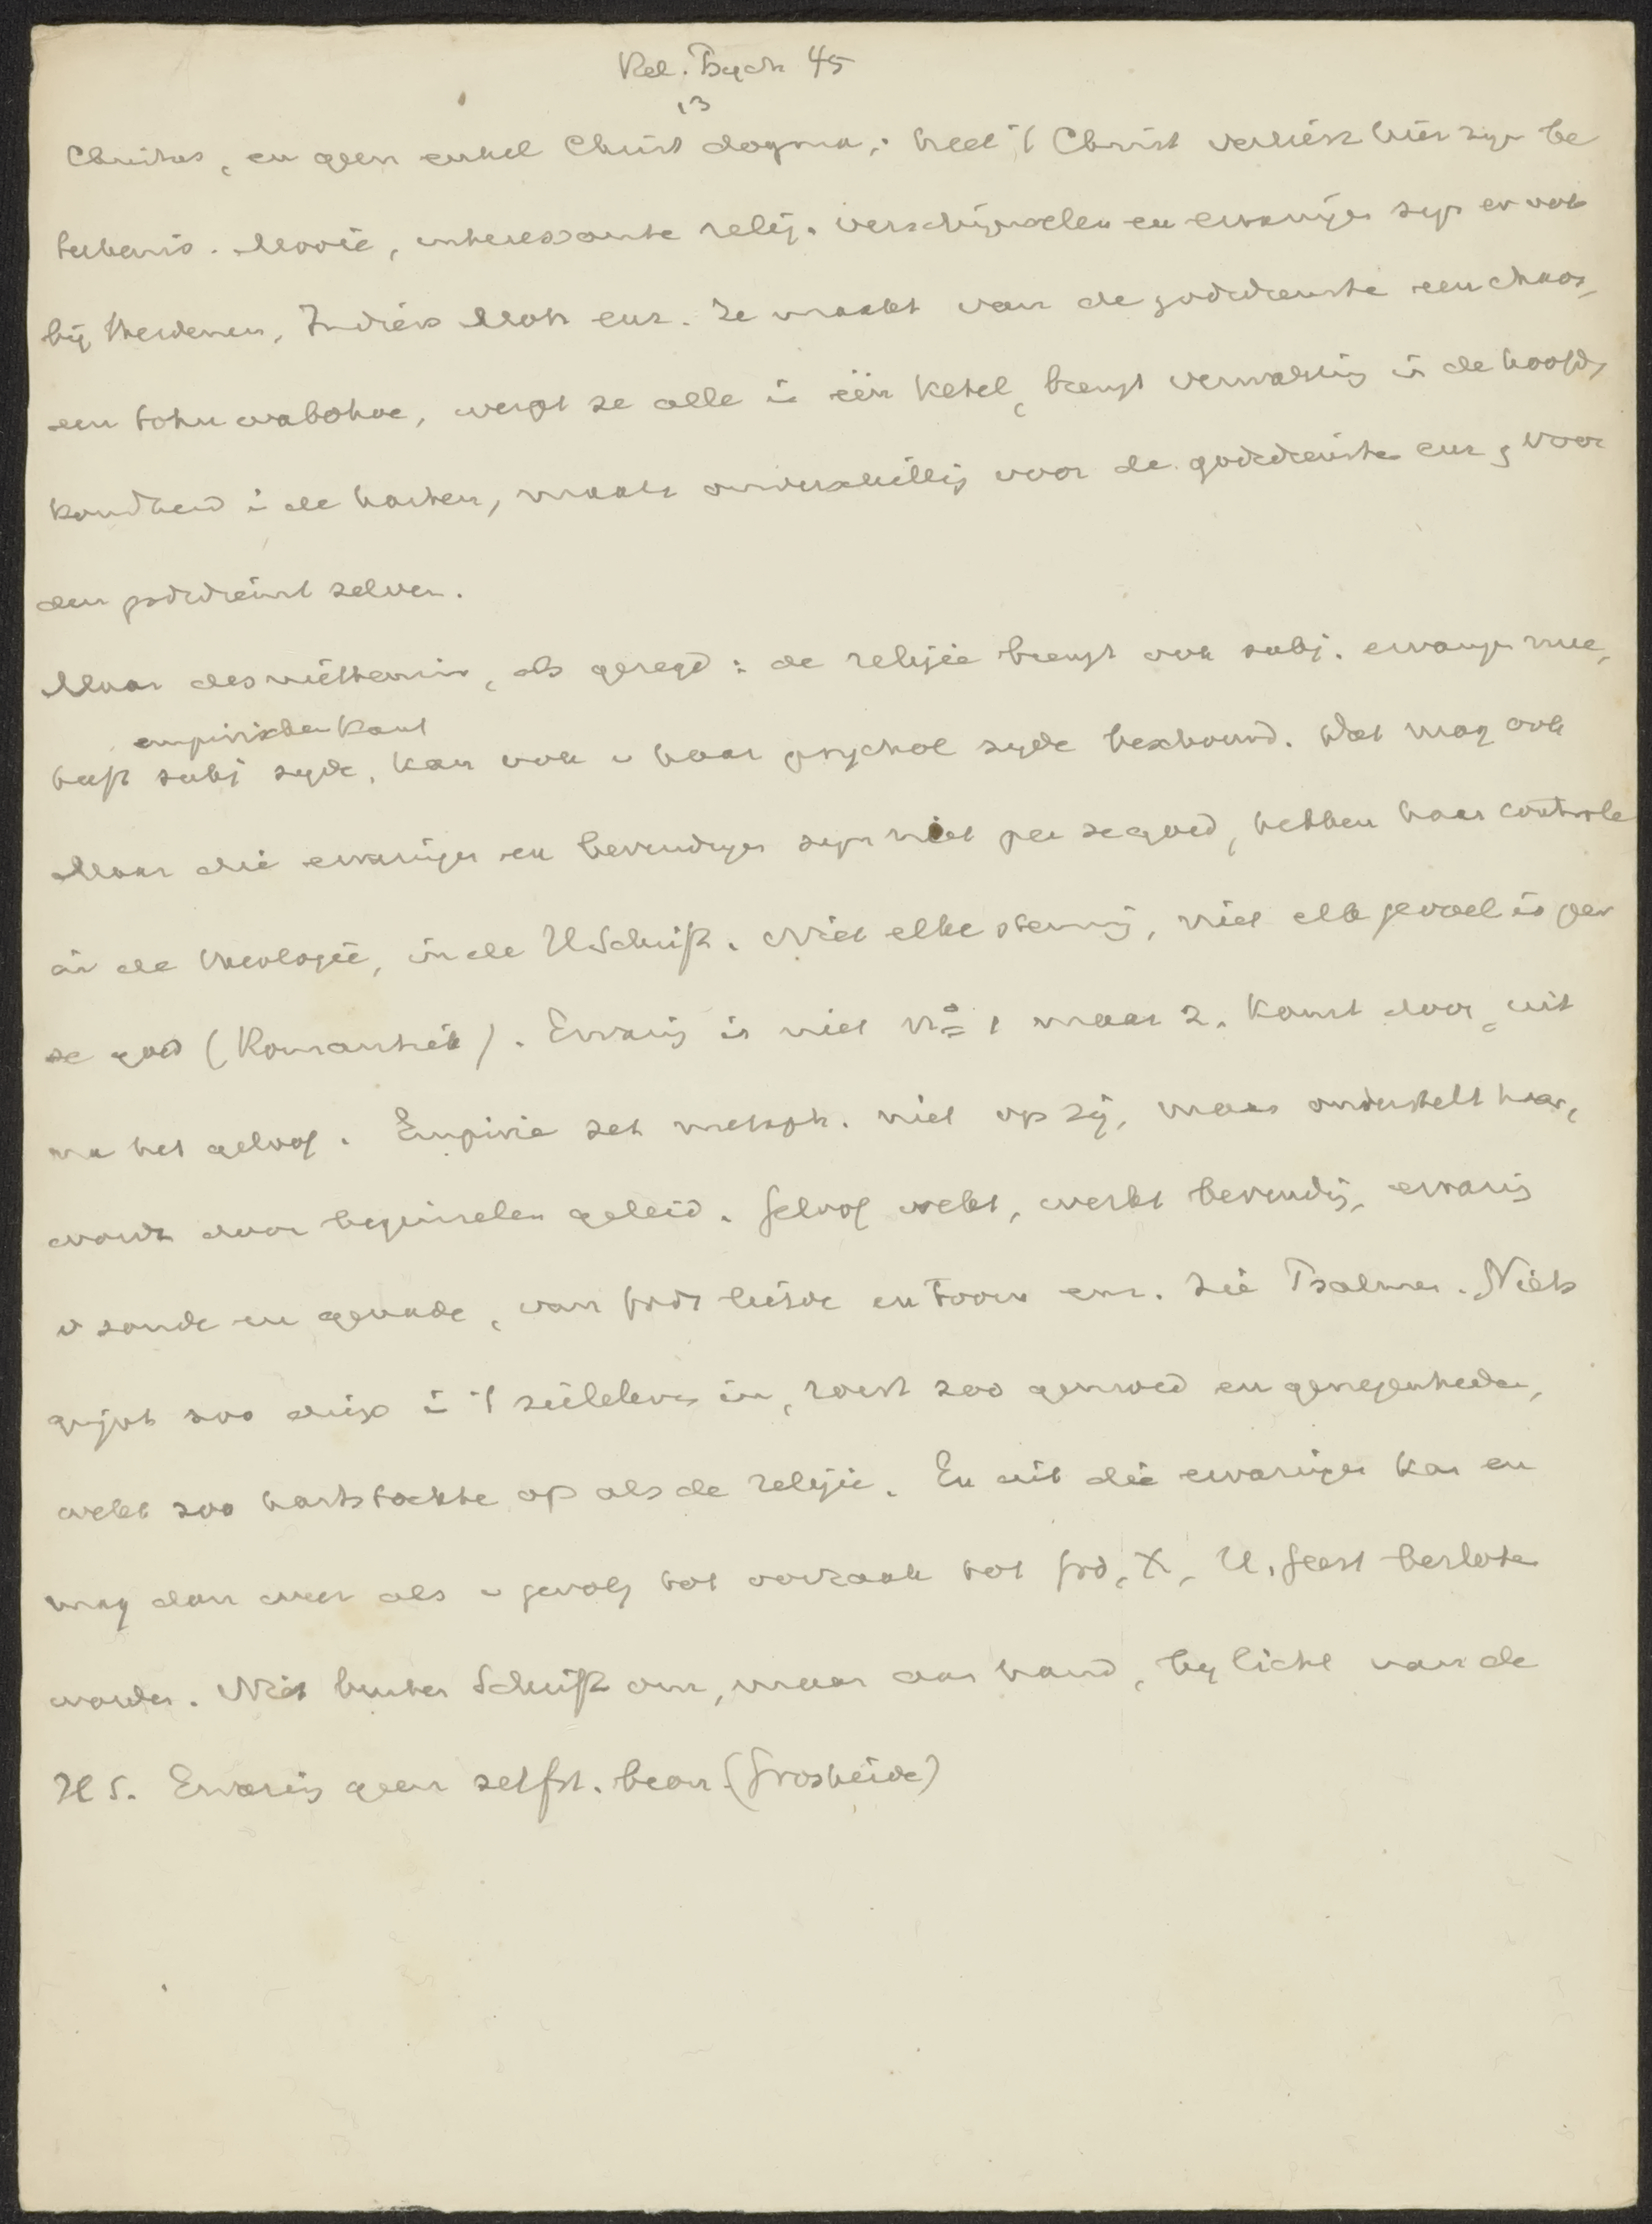 Rel. Psych 45
13
Christus, en geen enkel Christ dogma,: heel 't Christ verliest hier zijn be
teekenis. Mooie, interessante relig. verschijnselen en ervaringen zijn er ook
bij Heidenen, Indiërs Moh enz. Ze maakt van de godsdiensten een chaos,
een tohu wabohoe, werpt ze alle in één ketel, brengt verwarring in de hoofden,
koudheid in de harten, maakt onverschillig voor de godsdiensten enz, voor
den godsdienst zelven.
Maar desniettemin, als gezegd: de religie brengt ook subj. ervaringen mee,
empirischen kant
heeft subj zijde, kan ook v haar psychol zijde beschouwd. Dat mag ook
Maar die ervaringen en bevindingen zijn niet per se goed, hebben haar controle
in de theologie, in de HSchrift. Niet elke stemming, niet elk gevoel is per
se goed (Romantiek). Ervaring is niet No 1 maar 2. Komt door, uit
na het geloof. Empirie zet metaph. niet op zij, maar onderstelt haar,
wordt door beginselen geleid. Geloof wekt, werkt bevinding, ervaring
v zonde en genade, van Gods liefde en toorn enz. Zie Psalmen. Niets
grijpt zoo diep in 't zieleleven in, roert zoo gemoed en genegenheden,
wekt zoo hartstochten op als de religie. En uit die ervaringen kan en
mag dan weer als v gevolg tot oorzaak tot God, X, H. Geest besloten
worden. Niet buiten Schrift om, maar aan hand, bij licht van de
HS. Ervaring geen zelfst. bron (Grosheide)